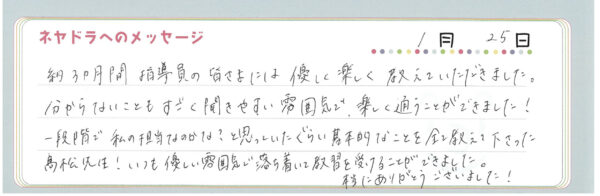 ネヤドラへのメッセージ
1月 25日
約3か月間 指導員の皆さまには 優しく楽しく 教えていただきました。
分からないこともすごく聞きやすい雰囲気で、楽しく通うことができました！
一段階で 私の担当なのかな？と思っていたぐらい基本的なことを全て教えて下さった
高松先生！いつも優しい雰囲気で落ち着いて教習を受けることができました。
本当にありがとうございました！